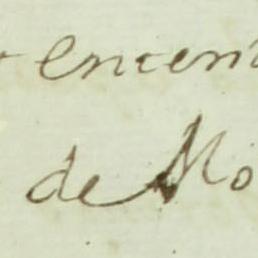 encen
de Mo